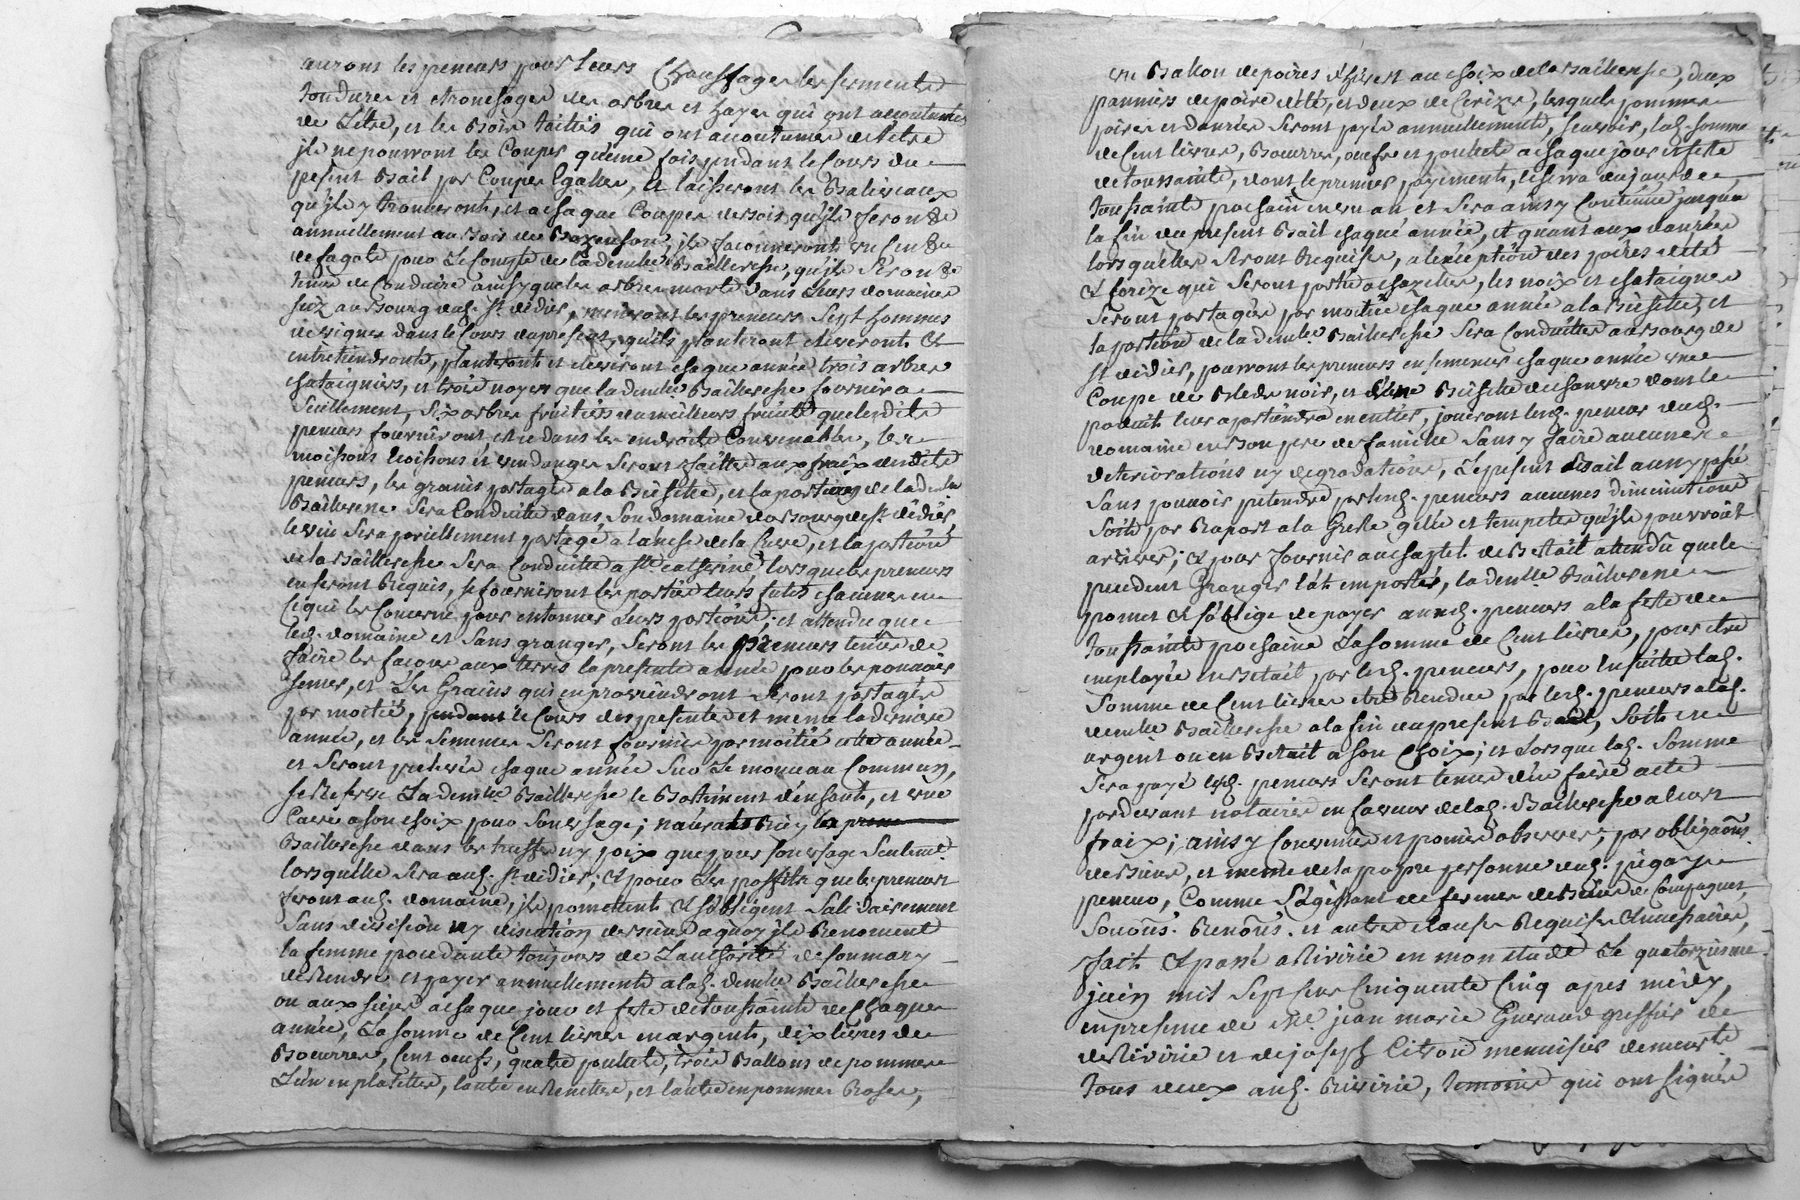 auront les preneurs pour leurs Chauffages les serments
tondures et etronchages des arbres et hayes qui ont accoutumés
de Letre, et les Bois taillis qui ont accoutumés de letre
jls ne pourront les Couper qu'une fois pendant le Cours du
present Bail par Coupes Egalles, Et laisseront les Baliveaux
qu'jls y trouveront, et a chaque Coupes de bois qu'jls feront
annuellement au Bois de jls faconneront un Cent
de fagots pour Le Compte de Ladem.lle Bailleresse, qu'jls seront
tenus de Conduire ainsy que les arbres morts dans Leurs domaines
sciz au Bourg dud. St. didier, les preneurs Sept hommes
de vignes dans le Cours du present, qu'jls planteront eleveront Et
entretiendront, planteront et eleveront chaque année trois arbres
chataigniers, et trois noyers que lademlle Bailleresse fournira
Seullement, Six arbres fruitiers du meilleurs fruits que lesdits
preneurs fourniront et ce dans les endroits Convenables, les
moissons et vendanges Seront faittes aux fraix desdits
preneurs, les grains partagés a la Bisistre, et la portion de lademlle
Bailleresse Sera Conduitte dans Son domaine du Bourg de St. didier,
le vin Sera pareillement partagé a lanche de la Cuve, et la portion
de la Bailleresse Sera Conduitte a Ste catherine lors que les preneurs
en seront Requis, se fourniront les parties leurs futes chacunes en
ce qui les Concerne pour entonner Leurs portions; et attendu que
led. domaine est Sans granger, Seront les preneurs tenus de
faire les facons aux terres la presente année pour les pouvoir
semer, et Les Grains qui en proviendront Seront partagés
par moitié, pendant le Cours des presentes et meme la derniere
année, et les Semences Seront fournies par moitié année
et Seront prelevés chaque année Sur Le monceau Commun,
se Reserve Lademlle Bailleresse le Batiment d'enhaut, et une
Cave a son choix pour Son usage; n'aura Rien
Bailleresse dans les truffes ny poix que pour son usage Seulemt
lors quelle Sera aud. St. didier; Et pour Les proffits que les preneurs
feront aud. domaine, jls promettent Et s'obligent Solidairement
Sans division ny discution de biens a quoy jls Renoncent
la femme procedante toujours de Lauthorité de son mary
de Rendre et payer annuellement a lad. demlle Bailleresse
ou aux siens a chaque jour et fete de toussaints de Chaque
année, La somme de Cent livres en argent, dix livres de
Boeurre, Cent oeufs, quatre poulets, trois Ballons de pommes
L'un en platettes, lautre en Renettes, et lautre en pommes Roses,
un Ballon de poires d'hivert au choix de la Bailleresse, deux
panniers de poire d'été, et deux de Cerizes, lesquels pommes
poires et denrées Seront payés annuellement, Scavoir, lad. Somme
de Cent livres, Boeurres, oeufs et poulets a chaque jour et fette
de toussaints, dont le premier payement, eschera du jour de
toussaints prochain en un an et Sera ainsy Continué jusqu'a
la fin du present Bail chaque année, et quant aux danrées
lorsquelles Seront Requises, a l'exeption des poires d'été
Et serize qui Seront portés achazelles, les noix et chataignes
Seront partagées par moitiés chaque année a la Bisistre, et
la portion de la demlle Bailleresse Sera Conduitte au Bourg de
St. didier, pourront les preneurs ensemencer chaque année une
Coupe de Bled noir, et d'une Bisistre de chanvre dont le
produit leur apartiendra en entier, jouiront lesd. preneurs dud.
domaine en bon pere de famille Sans y faire aucunes
deteriorations ny degradations, Le present Bail ainsy passé
Sans pouvoir pretendre par lesd. preneurs aucunes diminutions
Soit par Raport a la Gresle gelée et tempete qu'jls pourroit
arriver; Et pour fournir au chaptel de Bestail attendû que le
precedent Granger l'at emporter, lademlle Bailleresse
promet Et s'oblige de payer auxd. preneurs a la fete de
toussaints prochaine La somme de Cent livres, pour etre
employée en Betail par lesd. preneurs, pour Ensuitte lad.
Somme de Cent livres etre Rendue par lesd. preneurs a lad.
demlle Bailleresse a la fin du present Bail, Soit en
argent ou en Betail a son Choix; et Lors que lad. Somme
Sera payé lesd. preneurs Seront tenus d'en faire acte
pardevant notaire en faveur de lad. Bailleresse a leurs
fraix; ainsy Convenu et promis observer, par obligaôns
de biens, et meme de la propre personne dud. pegay
preneur, Comme S'agissant de fermes de biens de Campagnes,
Soumôns. Renôns. et autres clauses Requises Et necessaires,
fait Et passé a Riviric en mon etude Le quatorzieme
juin mil Sept Cens Cinquente Cinq apres midy,
en presence de me. jean marie Gueraud greffier de
de Rivirie et de joseph Citron menuisier demeurts
tous deux aud. Rivirie, temoins qui ont signés